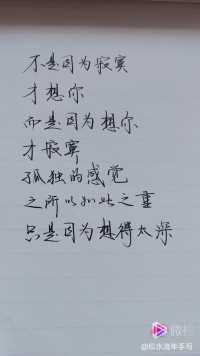 不是因为寂寞
才想你
而是因为想你
才寂寞
孤独的感觉
之所以如此之重
只是因为想得太深
微视
@似水流年手写